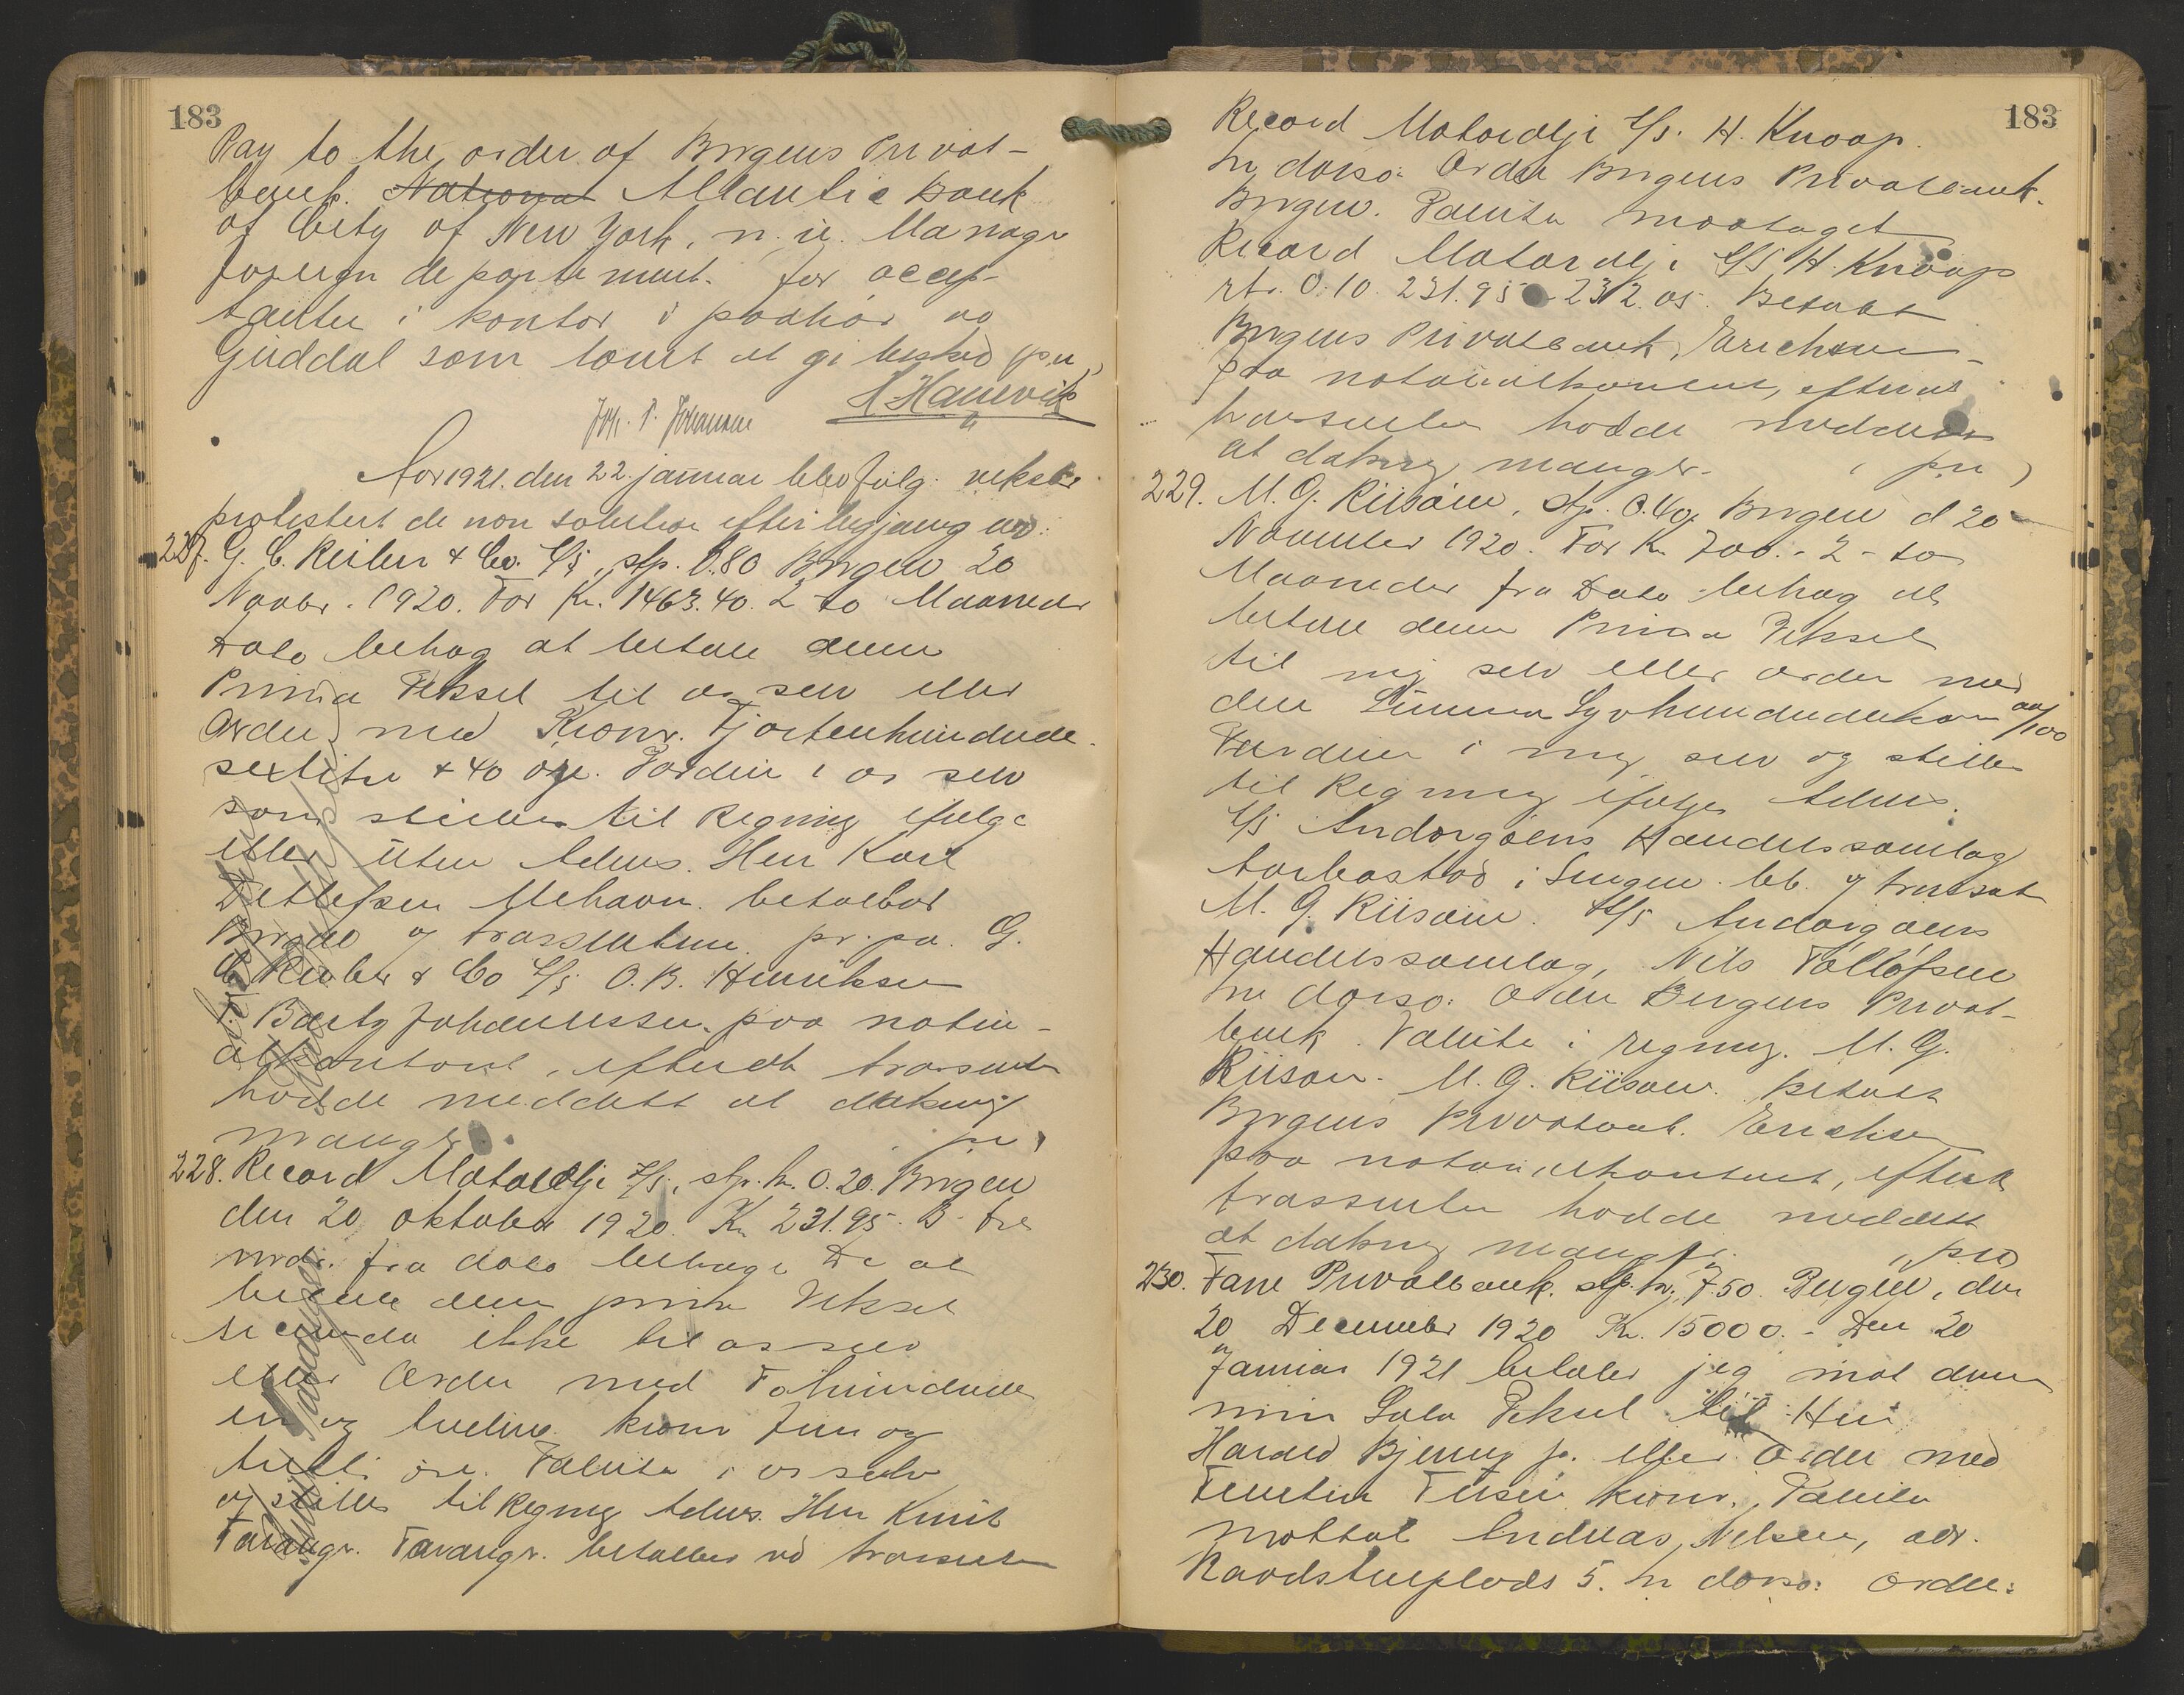 183
Pay to the order of Bergens Privat-
bank. National Atlantic Bank
of City of New York, n. u. Manager
foreign departement. for accep-
tanten i kontor i paahør av
Guddal som lovet at gi besked
A Hanevik
Joh. P. Johansen
Aar 1921. den 22. januar blev følg. veksler
protestert de non solution efter begjæring av:
227. G. C. Rieber & Co. A/S, stp. 0.80 Bergen 20
Novbr. 1920. For Kr. 1463.40. 2 to Maaneder
Dato behag at betale denne
Prima Veksel til os selv eller
Ordre med Kroner Fjortenhundrede-
sextitre & 40 øre. Værdien i os selv
som stilles til Regning ifølge
eller uten Advis. Herr Karl
Detlefsen Mehavn. betalbar
Bergen og trassenten pr. pa. G.
C. Rieber & Co A/S O. B. Henriksen
Johannessen. paa notari-
alkontoret, efterat trassenten
hadde meddelt at dækning
mangler
228. Record Motorolje A/S, stp. kr. 0.20. Bergen
den 20 oktober 1920. Kr. 231.95. 3 tre
mdr. fra dato behage De at
betale denne prima Veksel
secunda ikke til os selv
eller Ordre med Tohundrede
en og tredive kroner fem og
nitti øre. Valuta i os selv
og stilles til Regning advis. Herr Knut
Tavanger. Tavanger. betalbar ved trassenten
183
Record Motorolje A/S. H. Knoop.
In dorso: Ordre Bergens Privatbank.
Bergen. Valuta modtaget
Record Motorolje A/S H. Knoop
rtr. 0.10. 231.95 - 232.05. Betalt
Bergens Privatbank, Erichsen
paa notarialkontoret, efterat
trassenten hadde meddelt
at dækning mangler.
229. M. G. Riisøen, stp. 0.40, Bergen d 20
November 1920. For Kr. 700.- 2 - to
Maaneder fra Dato behag at
betale denne Prima Veksel
til mig selv eller ordre med
den Summa Syvhundredekroner 00/100
Værdien i mig selv og stilles
til Regning ifølge Advis.
A/S Andorgøens Handelssamlag
torbostad i Lengen. bb. og trassat
M. G. Riisøen. A/S Andorgøens
Handelssamlag, Nils Tollefsen
In dorso: Ordre Bergens Privat-
bank. Valuta i regning. M. G.
Riisøen. M. G. Riisøen. Betalt
Bergens Privatbank. Erichsen
paa notarialkontoret, efterat
trassenten hadde meddelt
at dækning mangler.
230. Fane Privatbank. stp. kr. 7.50. Bergen, den
20 December 1920 Kr. 15000.- Den 20
Januar 1921 betaler jeg mot denne
min Sola Veksel til Herr
Harald Bjerring jr. eller Ordre med
Femten Tusen kroner, Valuta
mottat Andreas Nelsen, adr.
Raadstueplads 5. In dorso: Ordre: